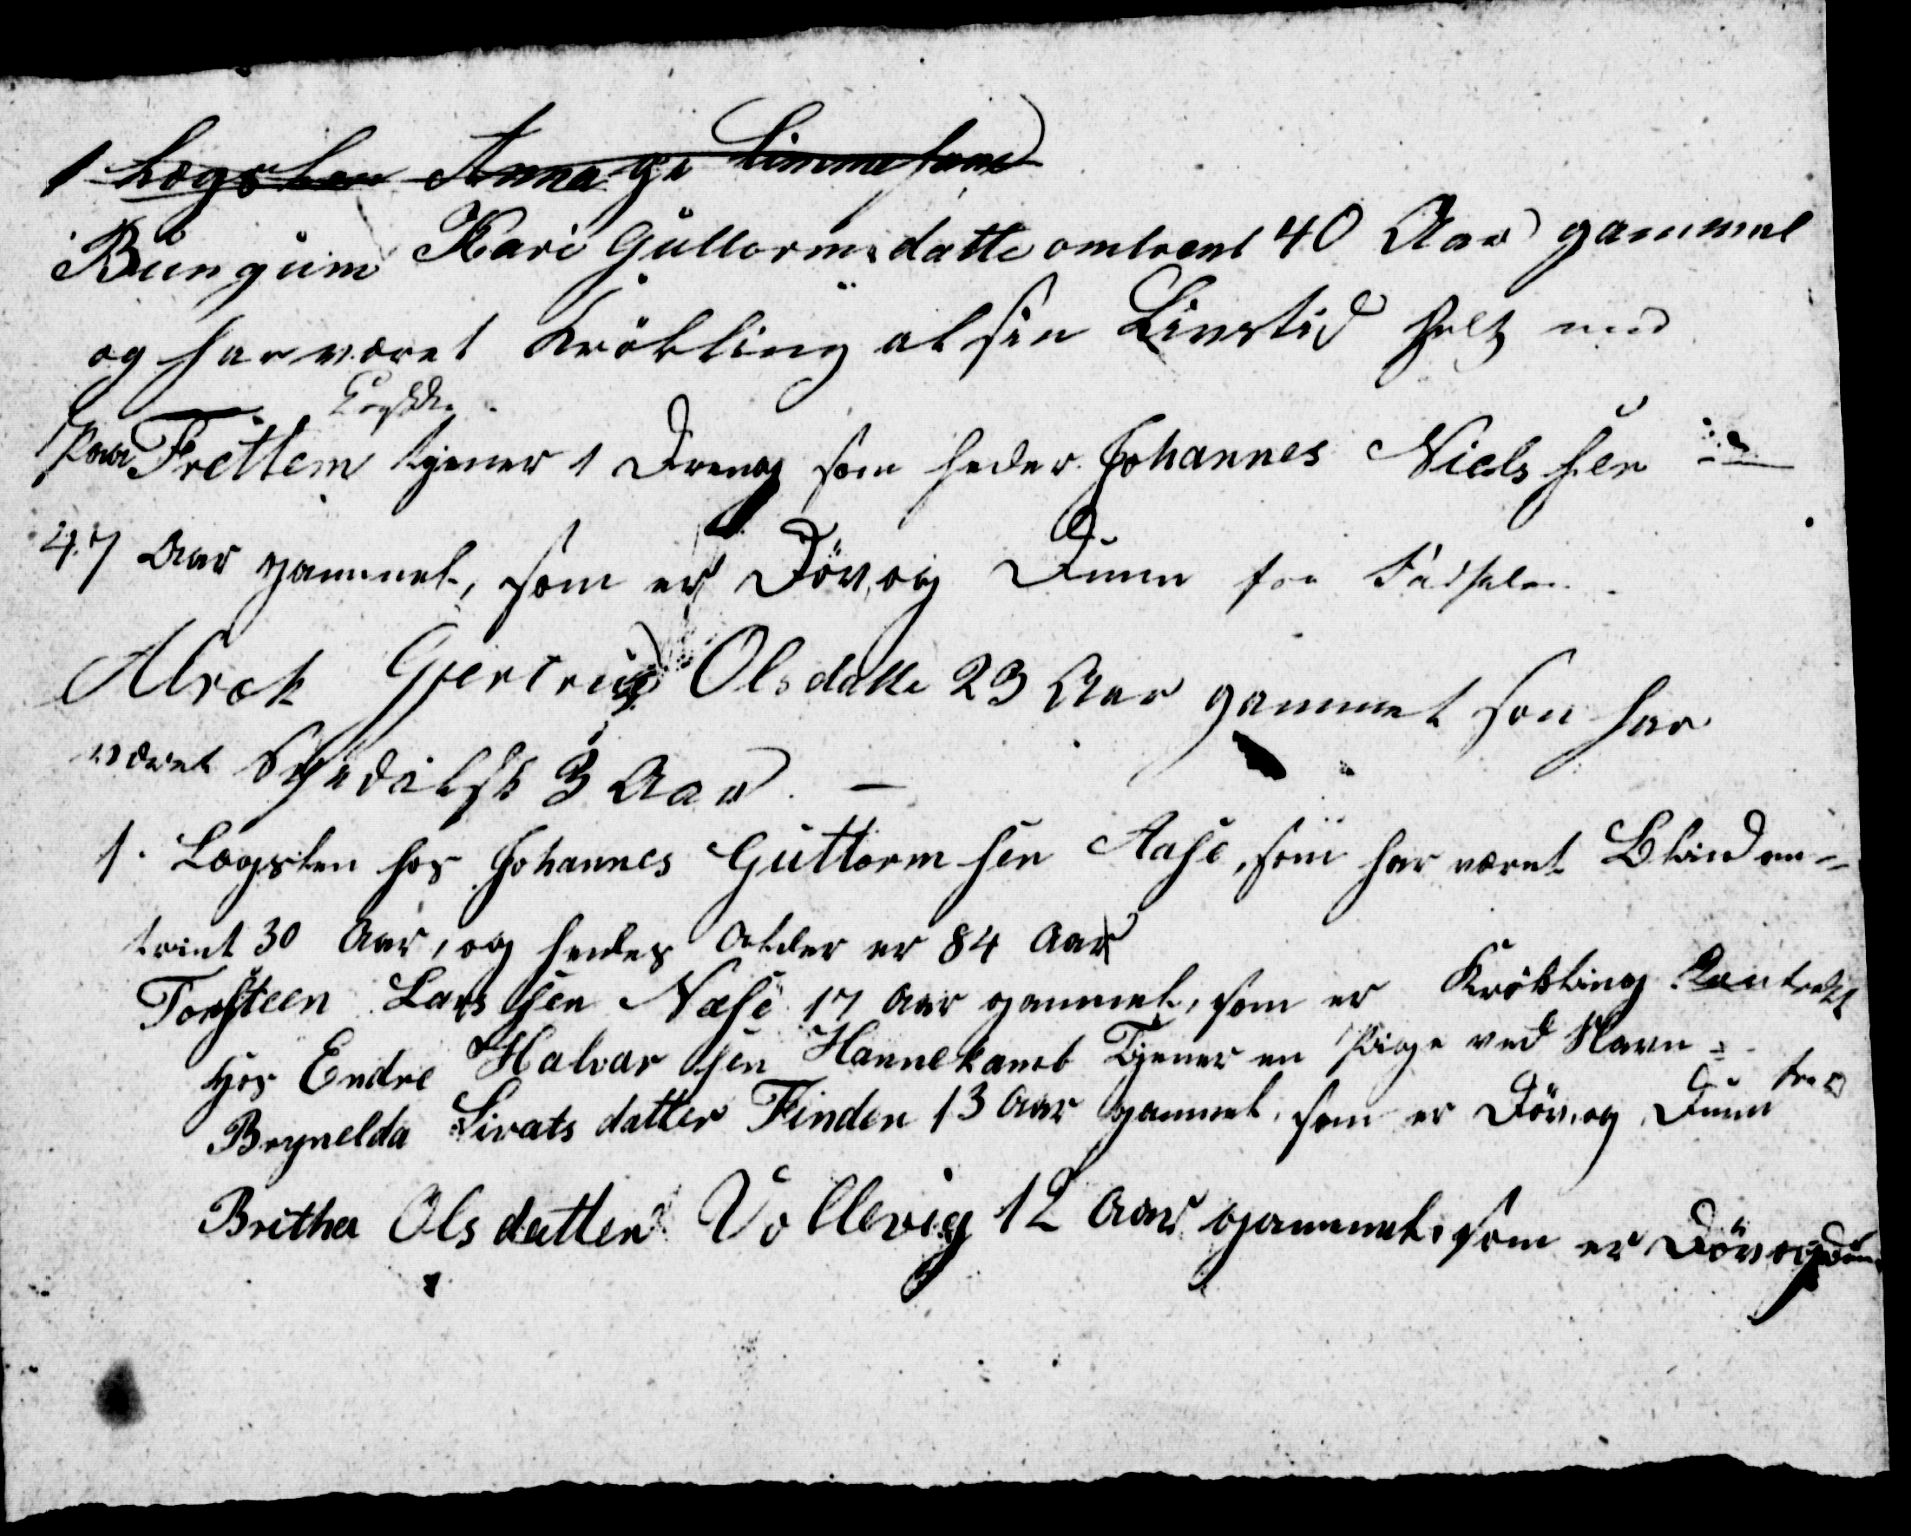 1 Lægsten Anna
Bungum Kari Guttormsdatte omtrent 40 Aar gammel
og har været Krøbling al sin Livstid
Paa Frettem tjener 1 Dreng som heder Johannes Niels sen
47 Aar gammel, som er Døv og Dum fra Fødselen.
Alræk Gjertrud Olsdatte 23 Aar gammel som har
været Spedalsk 3 Aar. —
1. Lægsten hos Johannes Guttorm sen Aase, som har været Blind om=
trint 30 Aar, og hendes Alder er 84 Aar
Torsteen Lars sen Næse 17 Aar gammel, som er Krøbling
Hos Endre Halvar sen Hannekamb Tjener en Pige ved Navn =
Brynelda Sivats datter Finden 13 Aar gammel, som er Døv og Dum
Britha Ols datter Vollevig 12 Aar gammel, som er Døv og dum